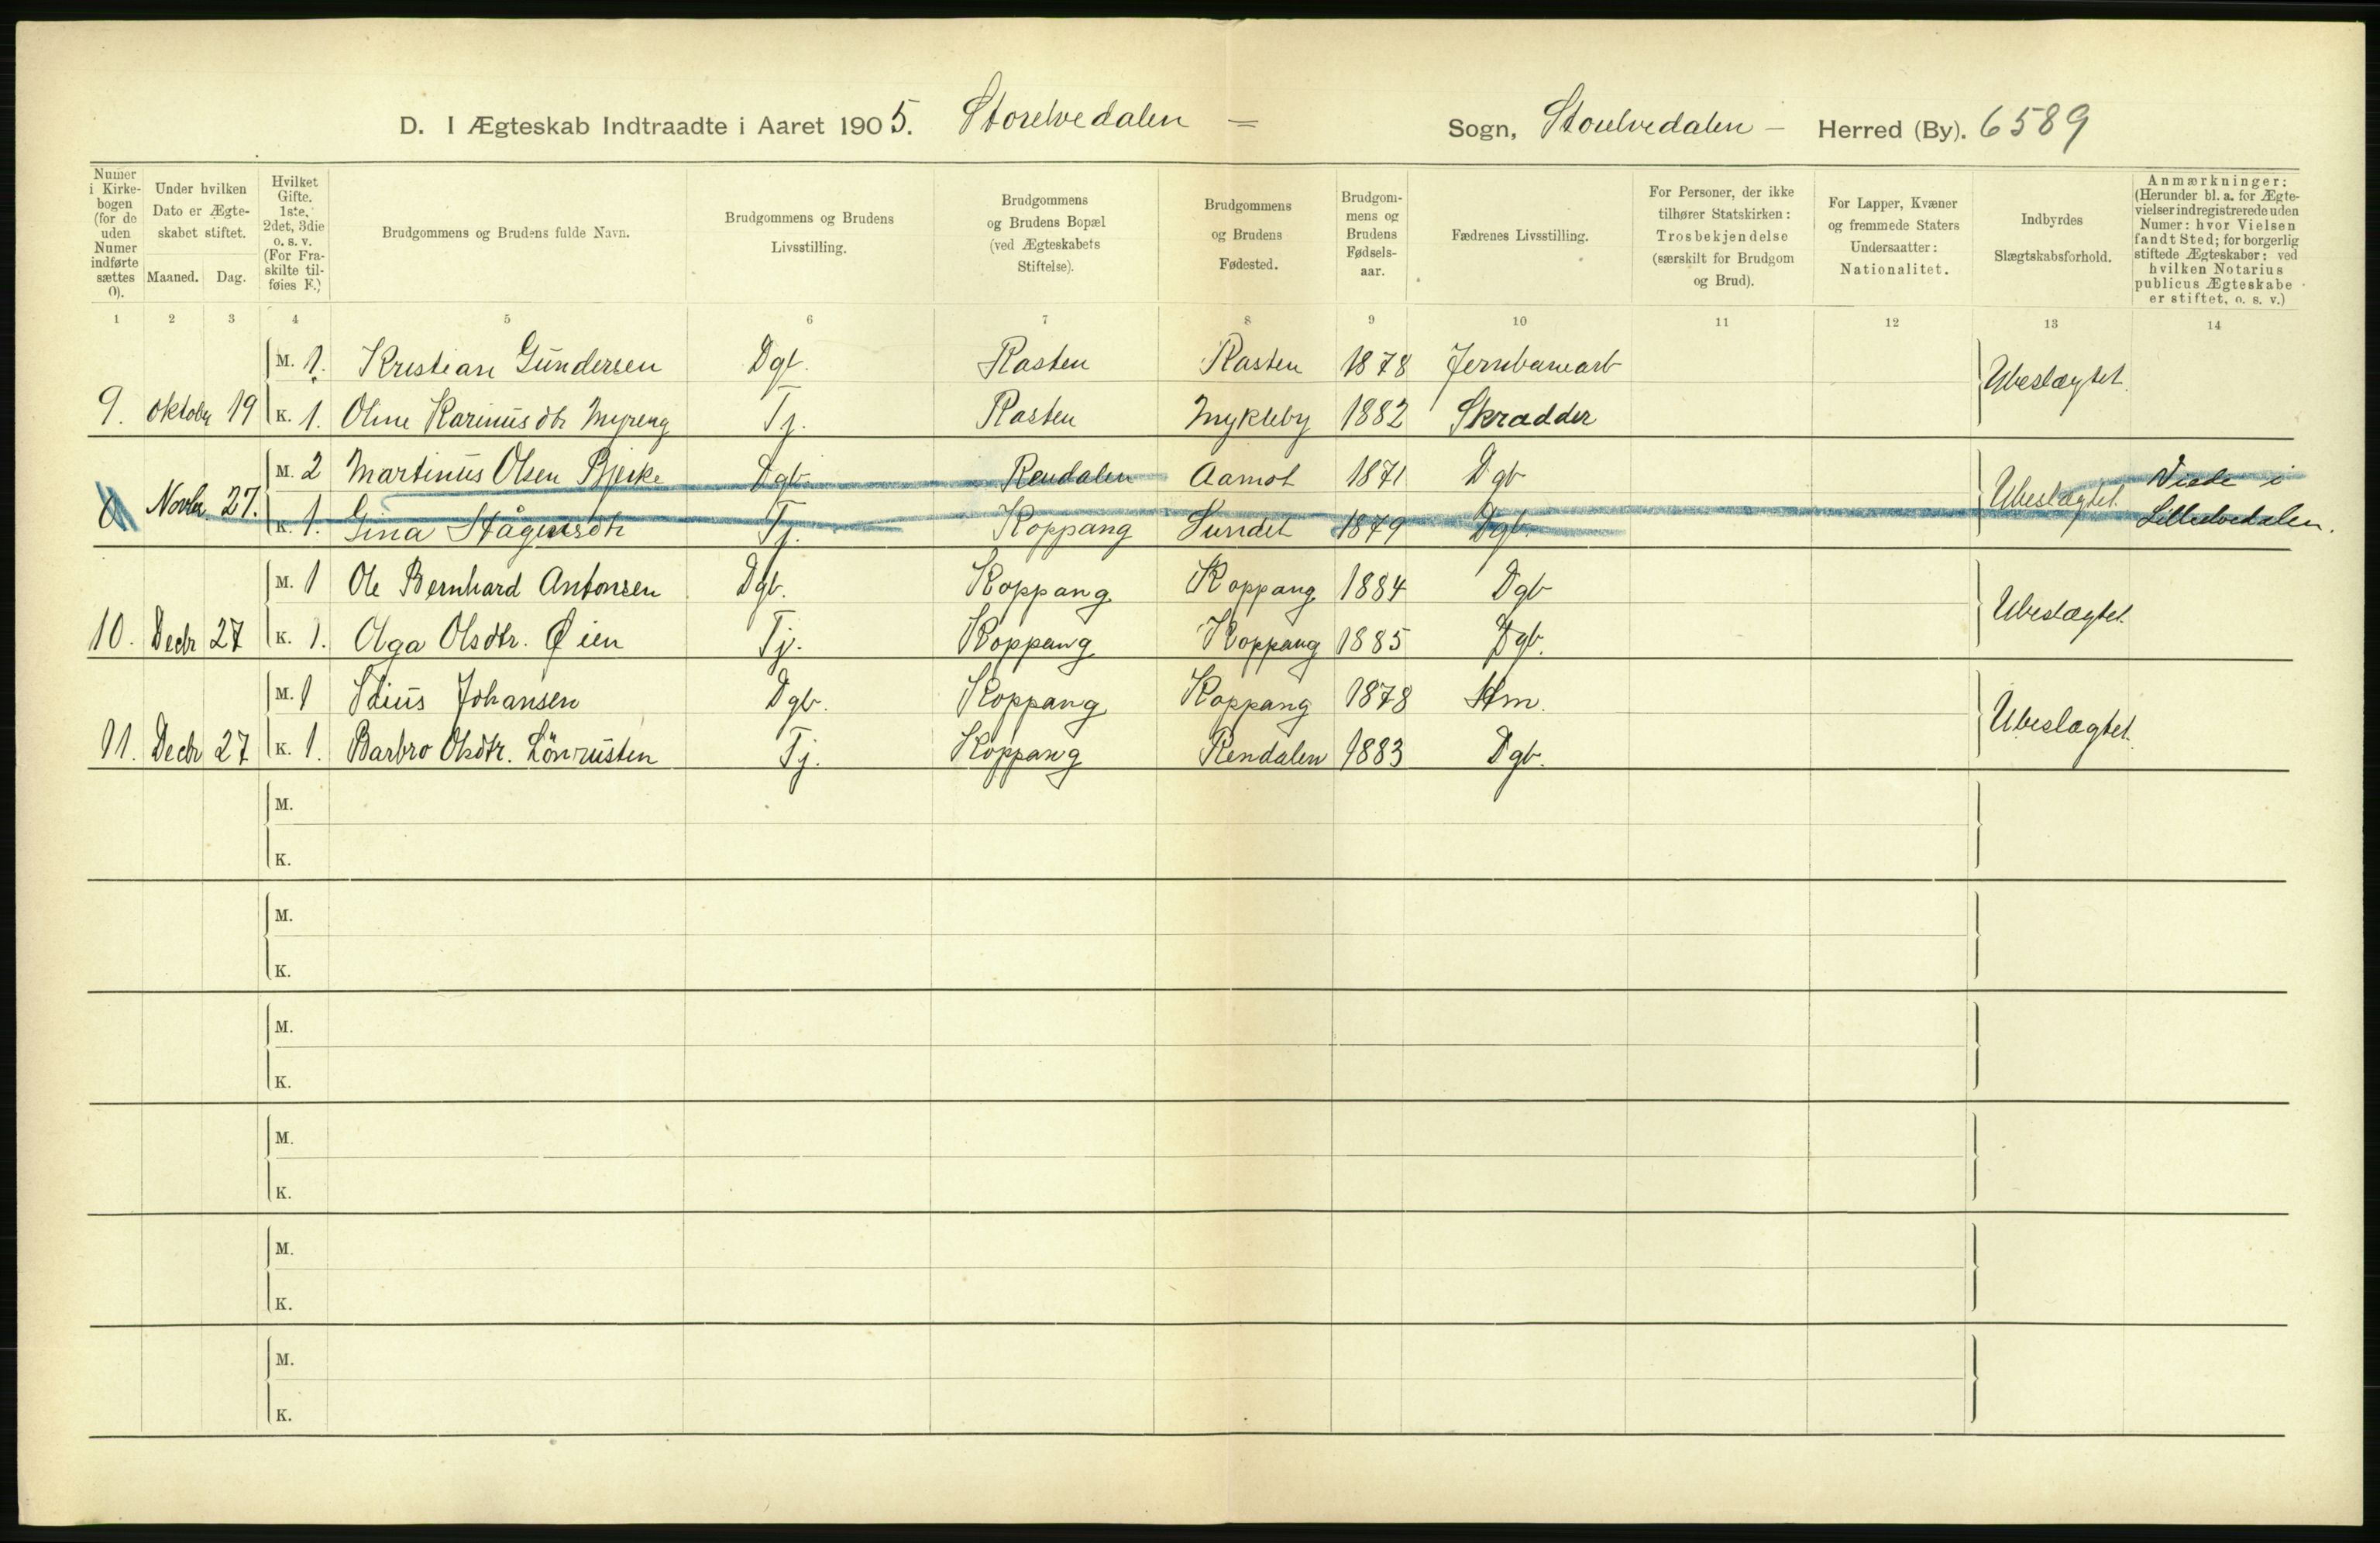 D. I Ægteskab Indtraadte i Aaret 1905. Storelvedalen = Sogn, Storelvedalen – Herred (By). 6589
Numer i Kirkebogen (for de uden Numer indførte sættes 0).
Under hvilken Dato er Ægteskabet stiftet.
Maaned. Dag.
Hvilket Gifte. 1ste, 2det, 3die o. s. v. (For Fraskilte tilføies F.)
Brudgommens og Brudens fulde Navn.
Brudgommens og Brudens Livsstilling.
Brudgommens og Brudens Bopæl (ved Ægteskabets Stiftelse).
Brudgommens og Brudens Fødested.
Brudgommens og Brudens Fødselsaar.
Fædrenes Livsstilling.
For Personer, der ikke tilhører Statskirken: Trosbekjendelse (særskilt for Brudgom og Brud).
For Lapper, Kvæner og fremmede Staters Undersaatter: Nationalitet.
Indbyrdes Slægtskabsforhold.
Anmærkninger: (Herunder bl. a. for Ægtevielser indregistrerede uden Numer: hvor Vielsen fandt Sted; for borgerlig stiftede Ægteskaber: ved hvilken Notarius publicus Ægteskabe er stiftet, o. s. v.)
1 2 3 4 5 6 7 8 9 10 11 12 13 14
M. 1. Kristian Gundersen Dgb. Rasten Rasten 1878 Jernbanearb Ubeslægtet.
9. Oktober 19 K. 1. Oline Karinusdtr Myreng Tj. Rasten Mykleby 1882 Skrædder
M. 2 Martinus Olsen Bjerke Dgb. Rendalen Aamot 1871 Dgb Ubeslægtet Viede i
0 Novbr. 27. K. 1. Gina Hågensdtr Tj. Koppang Sundet 1879 Dgb. Lilleelvedalen.
M. 1 Ole Bernhard Antonsen Dgb. Koppang Koppang 1884 Dgb Ubeslægtet
10. Decbr 27 K. 1. Olga Olsdtr. Øien Tj. Koppang Koppang 1885 Dgb.
M. 1 Idius Johansen Dgb. Koppang Koppang 1878 Hm. Ubeslægtet.
11. Decbr 27 K. 1. Barbro Olsdtr. Lönrusten Tj. Koppang Rendalen 1883 Dgb.
M.
K.
M.
K.
M.
K.
M.
K.
M.
K.
M.
K.